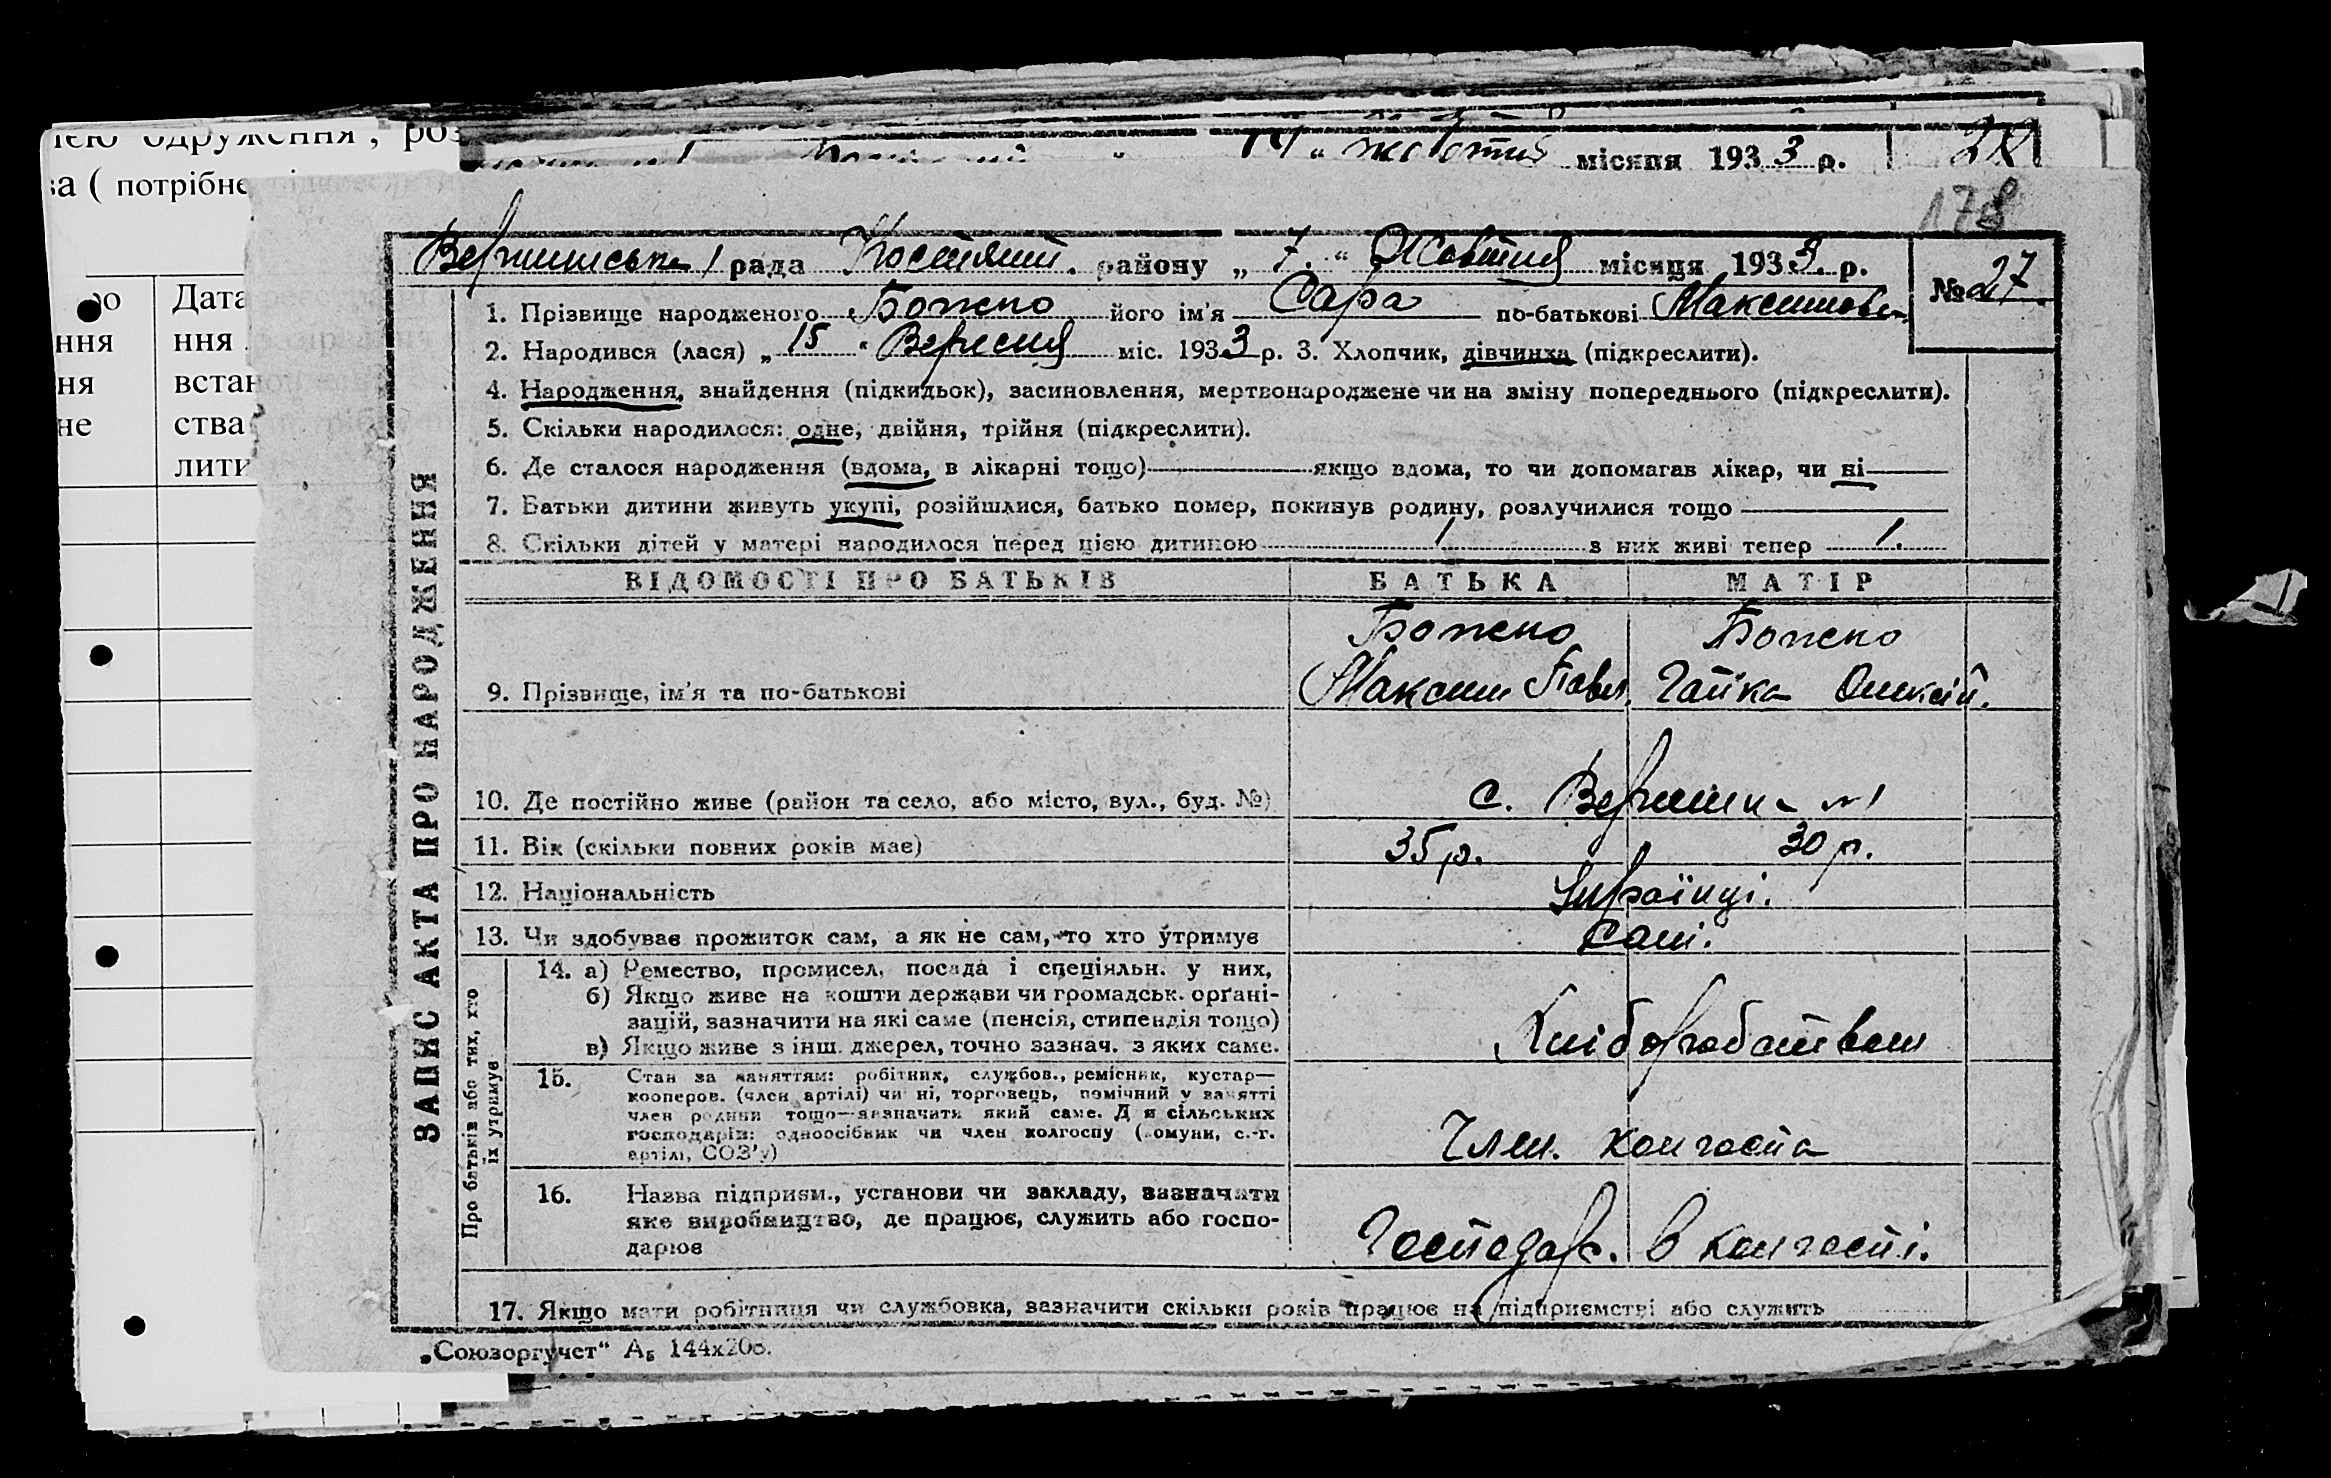 ією одруження, роз
ва ( потрібне
" жовтня місяця 1933 р.
178
рада района „ 7. “ Жовтня місяця 1933. р.
№ 27
1. Прізвище народженого Божко його ім'я Сара по-батькові Максимовн
2. Народився (лася) „ 15 “ Вересня міс. 1933 р. 3. Хлопчик, дівчинка (підкреслити).
4. Народження, знайдення (підкидьок), засиновлення, мертвонароджене чи на зміну попереднього (підкреслити).
5. Скільки народилося: одне, двійня, трійня (підкреслити).
6. Де сталося народження (вдома, в лікарні тощо) якщо вдома, то чи допомагав лікар, чи ні
7. Батьки дитини живуть укупі, розійшлися, батько помер, покинув родину, розлучилися тощо
8. Скільки дітей у матері народилося перед цією дитиною 1 з них живі тепер 1.
ЗАПИС АКТА ПРО НАРОДЖЕННЯ
ВІДОМОСТІ ПРО БАТЬКІВ БАТЬКА МАТІР
Божко Божко
9. Прізвище, ім'я та по-батькові Максим Павл. Гапка Олексій.
10. Де постійно живе (район та село, або місто, вул., буд. №) с. Вершини №1
11. Вік (скільки повних років має) 35 р. 30 р.
12. Національність Українці.
13. Чи здобуває прожиток сам, а як не сам, то хто утримує Самі.
Про батьків або тих, хто
їх утримує
14. а) Ремество, промисел, посада і спеціяльн. у них,
б) Якщо живе на кошти держави чи громадськ. орґані-
зацій, зазначити на які саме (пенсія, стипендія тощо)
в) Якщо живе з інш. джерел, точно зазнач. з яких саме.
Хліборобством
15. Стан за заняттям: робітник, службов., ремісник, кустар—
кооперов. (член артілі) чи ні, торговець, помічний у занятті
член родини тощо—зазначити який саме. Для сільських
господарів: одноосібник чи член колгоспу (комуни, с.-г.
артілі, СОЗ'у)
Член. колгоспа
16. Назва підприєм., установи чи закладу, зазначити
яке виробництво, де працює, служить або госпо-
дарює
Господар. в колгоспі.
17. Якщо мати робітниця чи службовка, зазначити скільки років працює на підприємстві або служить
„Союзоргучет“ А₅ 144х208.
Дата
ння ння
ня встан
не ства
лити